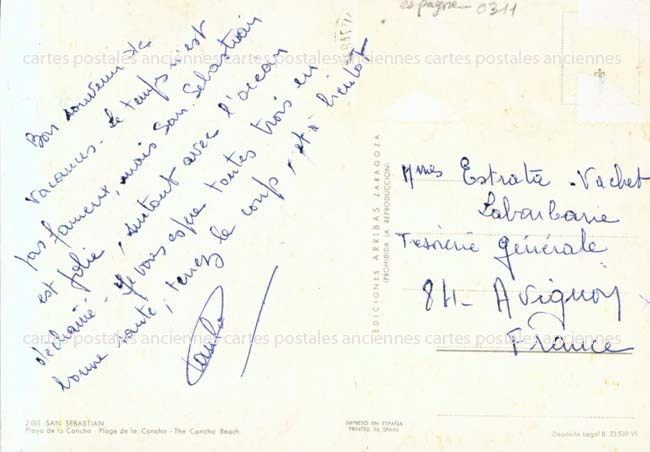 espagne 0311
Bon souvenir de
vacances. Le temps n'est
pas fameux, mais San Sébastian
est jolie, surtout avec l'océan
déchaîné. Je vous espère toutes trois en
bonne santé; tenez le coup, et à bientôt
Mmes Estrata. Vachet
Labarbarie
Trésorerie générale
84- Avignon
France
EDICIONES ARRIBAS ZARAGOZA
(PROHIBIDA LA REPRODUCCION)
2.001 -SAN SEBASTIAN
Playa de la Concha - Plage de la Concha - The Concha Beach
IMPRESO EN ESPAÑA
PRINTED IN SPAIN
Depósito Legal B. 23.519-VI
cartes postales anciennes cartes postales anciennes cartes postales anciennes
cartes postales anciennes cartes postales anciennes cartes postales anciennes